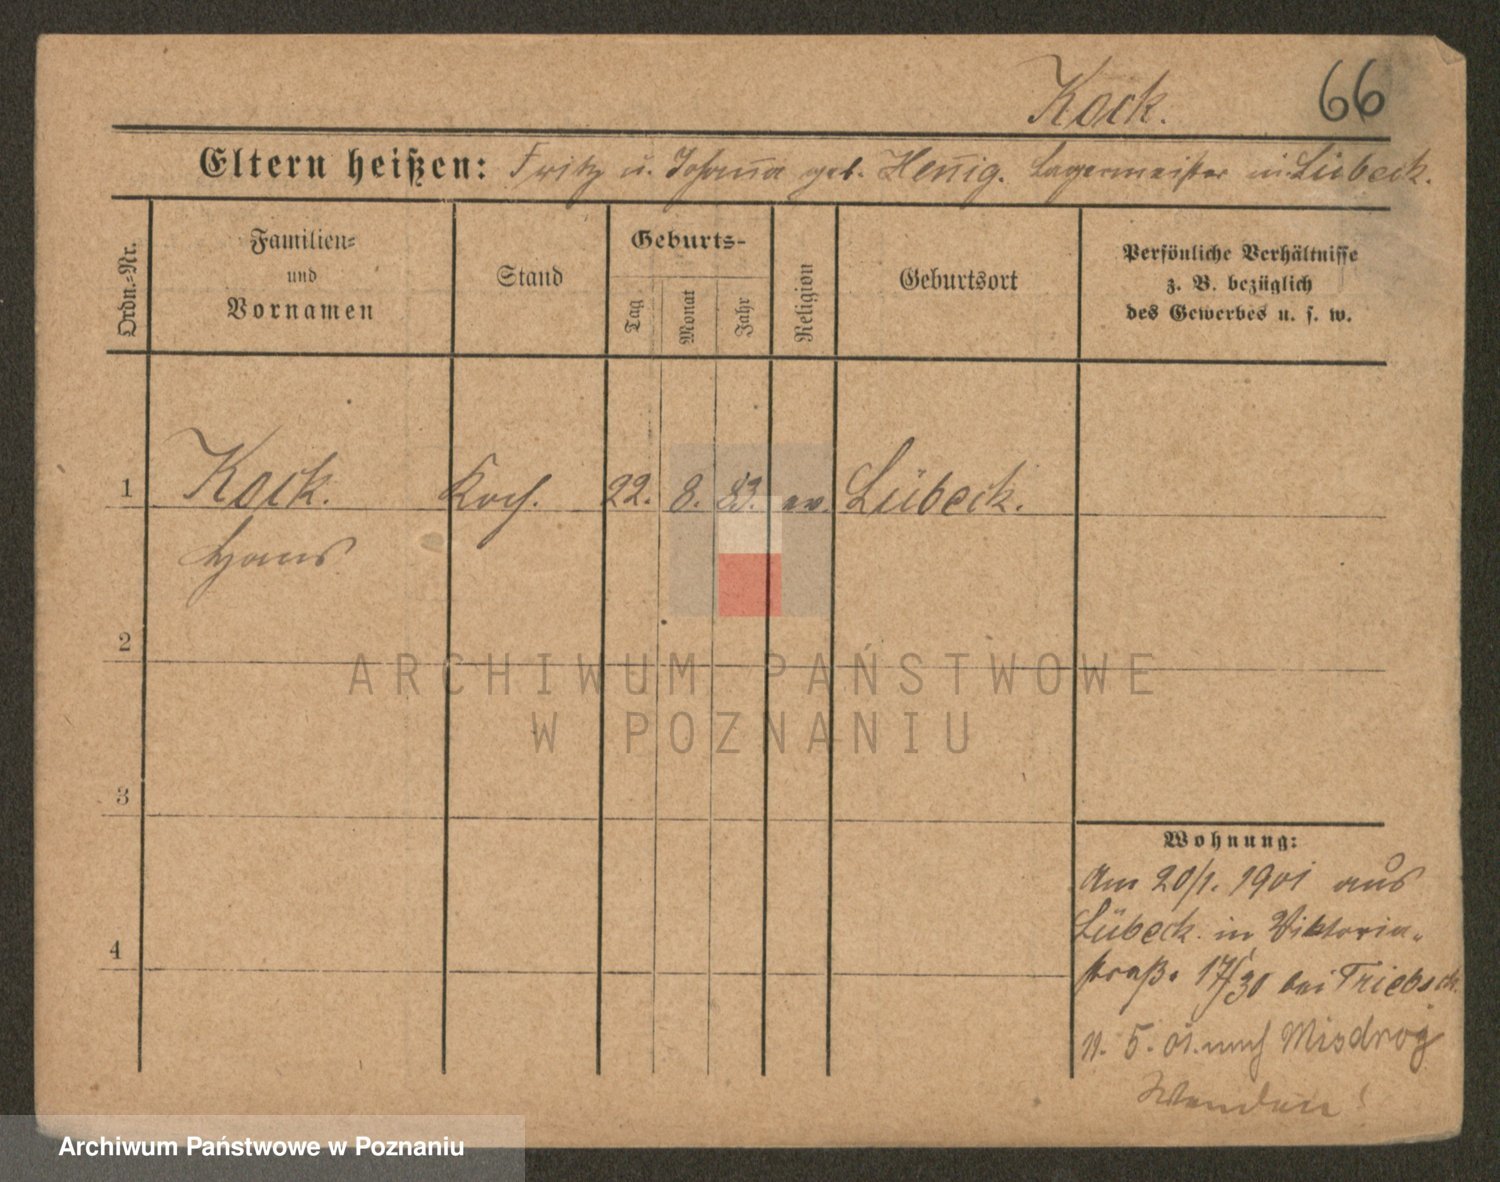 Kock.
66
Eltern heißen: Fritz u. Johanna geb. Hennig. Lagermeister in Lübeck.
Ordn.-Nr.
Familien-
und
Vornamen
Stand
Geburts-
Tag
Monat
Jahr
Religion
Geburtsort
Persönliche Verhältnisse
z. B. bezüglich
des Gewerbes u. s. w.
1 Kock. Koch. 22. 8. 83. ev. Lübeck.
Hans
2
3
4
Wohnung:
Am 20/1. 1901 aus
Lübeck in Viktoria-
straße 17/30 bei Triebsch.
11. 5. 01. nach Misdroy
Wenden!
ARCHIWUM PAŃSTWOWE
W POZNANIU
Archiwum Państwowe w Poznaniu